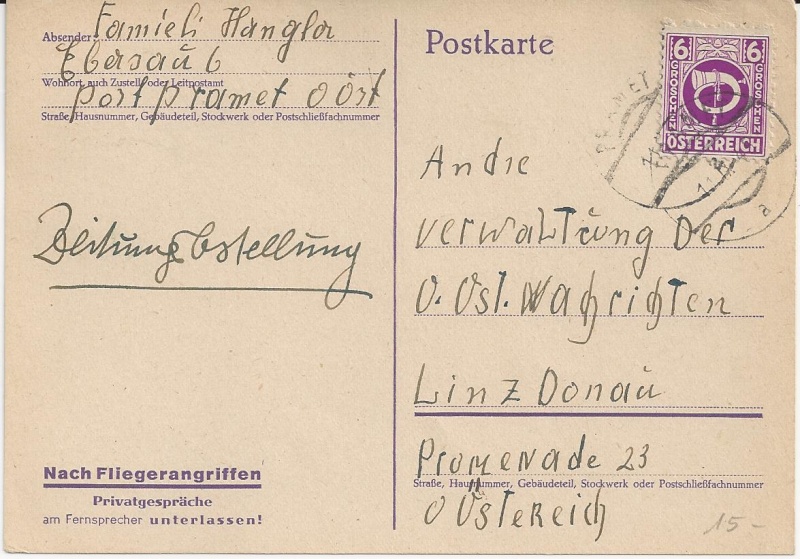 Absender: Famieli Hangla
Ebersaŭ 6
Wohnort, auch Zustell- oder Leitpostamt
Post Pramet O Öst
Straße, Hausnummer, Gebäudeteil, Stockwerk oder Postschließfachnummer
Zeitungsbstellung
Nach Fliegerangriffen
Privatgespräche
am Fernsprecher unterlassen!
Postkarte
6 6
GROSCHEN GROSCHEN
ÖSTERREICH
PRAMET
a
An die
Verwaltŭng der
O. Öst. Nachrichten
Linz Donaŭ
Promenade 23
Straße, Hausnummer, Gebäudeteil, Stockwerk oder Postschließfachnummer
O Östereich
15-